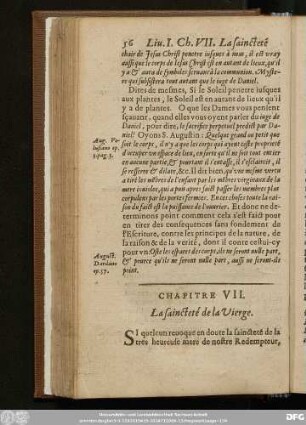 56 Liu. I. Ch. VII. La saincteté
chair de Jesus Christ penetre iusques à moi, il est vray
aussi que le corps de Iesus Christ est en autant de lieux, qu'il
y a & aura de symboles seruans à la communion. Myste-
re qui subsistera tout autant que le iuge de Daniel.
Dites de mesmes, Si le Soleil penetre iusques
aux plantes, le Soleil est en autant de lieux qu'il
y a de plantes. O que les Dames vous pensent
sçauant, quand elles vous oyent parler du iuge de
Daniel, pour dire, le sacrifice perpetuel predict par Da-
niel! Oyons S. Augustin: Quelque grand ou petit que
soit le corps, il n'y a que les corps qui ayent ceste proprieté
d'occuper vn espace de lieu, en sorte qu'il ne soit tout entier
en aucune partie, & pourtant il s'entasse, il s'esclaircit, il
se resserre & dilate, &c. Il dit bien, qu'vne mesme vertu
a tiré les membres de l'enfant par les membres
mere que apres faict passer les membres plus
corpulens par les portes fermees. En ces choses toute la rai-
son du faict est la puissance de l'ouurier. Et donc ne de-
terminons point comment cela s'est faict pour
en tirer des consequences sans fondement de
l'Escriture, contre les principes de la nature, de
la raison & de la verité, dont il conte cestui-cy
pour vn: Oste les espaces de corps, ils ne seront nulle part,
& pource qu'ils ne seront nulle part, aussi ne seront-ils
point.
Aug.
August.
Dardanum
ep. 57.
CHAPITRE VII.
La saincteté de la Vierge.
SI quelcun reuoque en doute la saincteté de la
tres heureuse mere de nostre Redempteur,
DFG